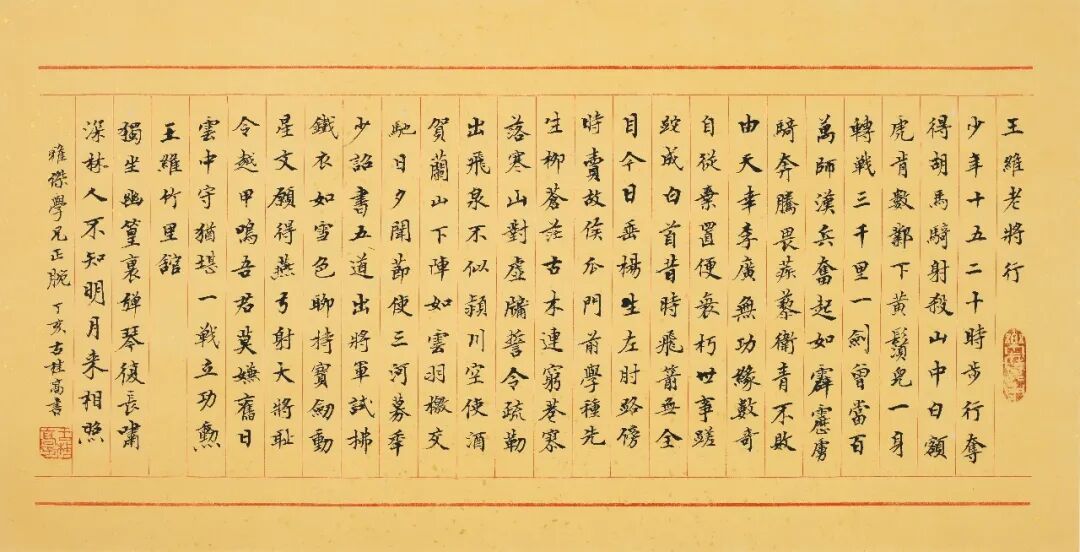 王維老將行
少年十五二十時步行奪
得胡馬騎射殺山中白額
虎肯數鄴下黃鬚兒一身
轉戰三千里一劍曾當百
萬師漢兵奮起如霹靂虜
騎奔騰畏蒺藜衛青不敗
由天幸李廣無功緣數奇
自從棄置便衰朽世事蹉
跎成白首昔時飛箭無全
目今日垂楊生左肘路傍
時賣故侯瓜門前學種先
生柳蒼茫古木連窮巷寒
落寒山對虛牖誓令疏勒
出飛泉不似潁川空使酒
賀蘭山下陣如雲羽檄交
馳日夕聞節使三河募年
少詔書五道出將軍試拂
鐵衣如雪色聊持寶劒動
星文願得燕弓射天將恥
令越甲鳴吾君莫嫌舊日
雲中守猶堪一戰立功勲
王維竹里館
獨坐幽篁裏弹琴復長嘯
深林人不知明月来相照
雅傑學兄正腕 丁亥 桂高書